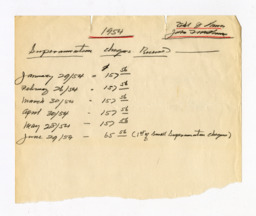 1954
Superannuation cheques Received
January 29/54 - $ 157 56
February 26/54 - 157 56
March 30/54 - 157 56
April 30/54 - 157 56
May 28/54 - 157 56
June 29/54 - 65 56 (1st of Small Superannuation cheques)